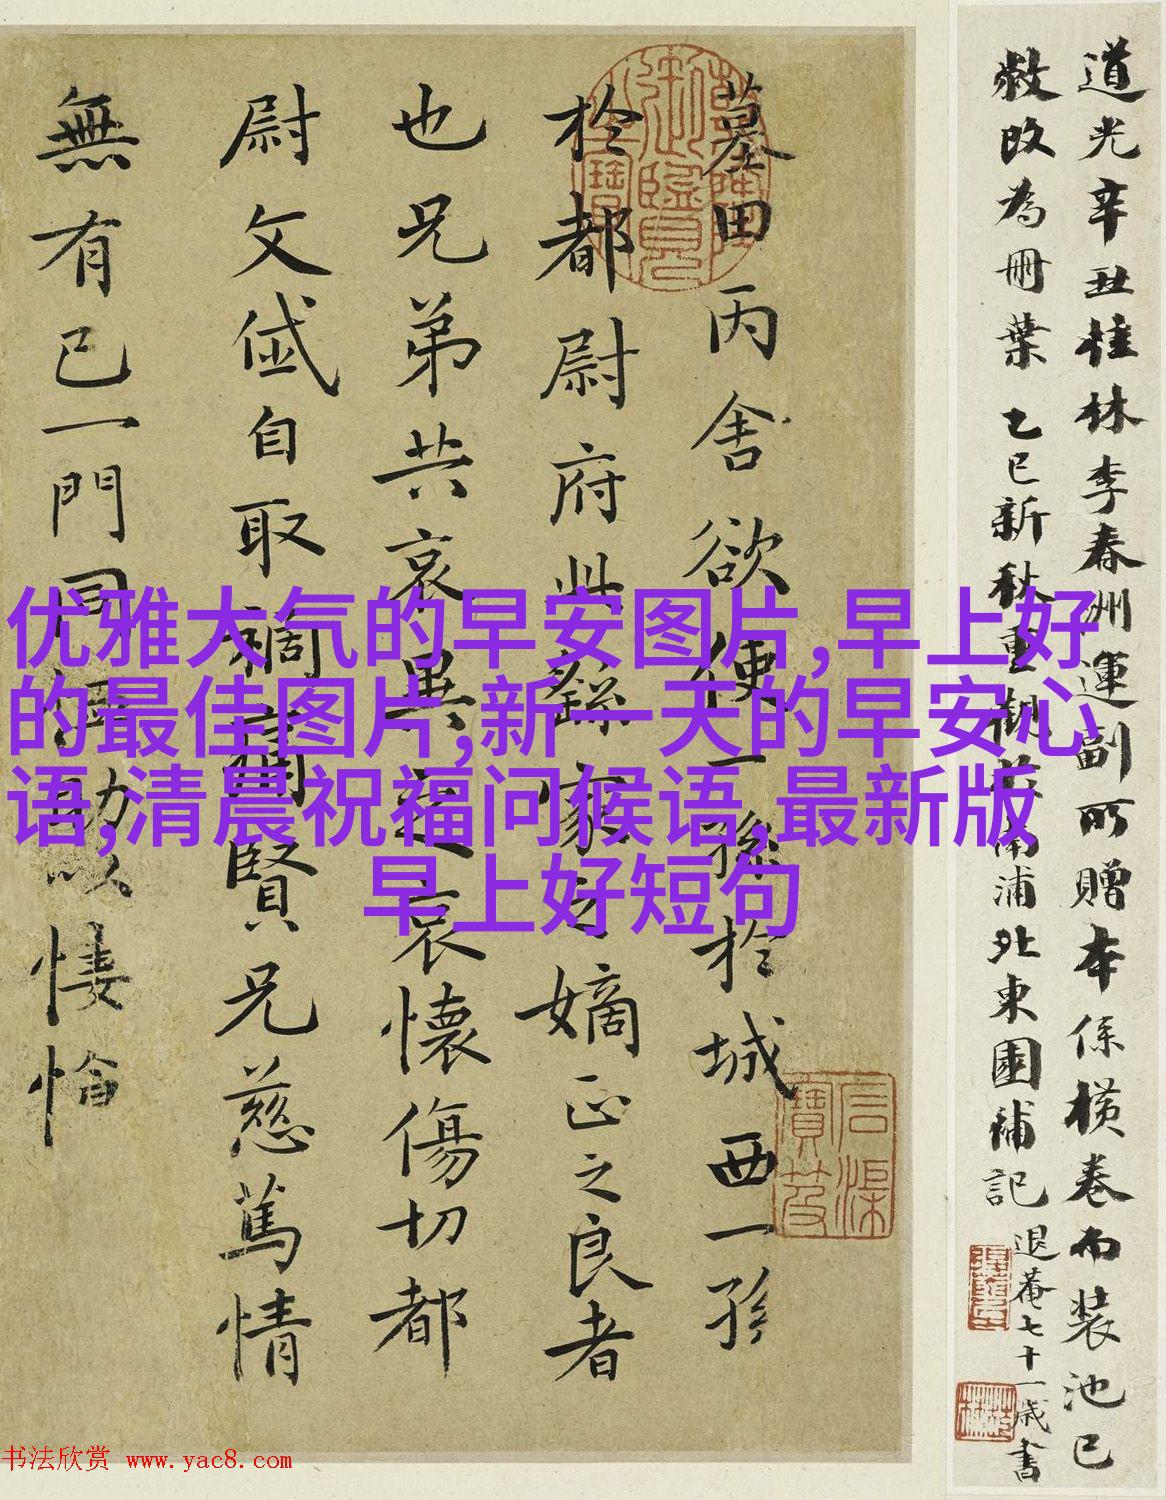 道光辛丑桂林李春洲運副所贈本係横卷而装池已
敝改為冊葉 乙巳新秋重觀於南浦北東園補記
退菴七十一歲書
墓田丙舍欲使一孫於城西一孫
於都尉府此繇家之嫡正之良者
也兄弟共哀異之哀懷傷切都
尉文岱自取禍痛賢兄慈篤情
無有已一門同恤助以悽愴
石渠寶笈
优雅大气的早安图片,早上好
的最佳图片,新一天的早安心
语,清晨祝福问候语,最新版
早上好短句
书法欣赏 www.yac8.com